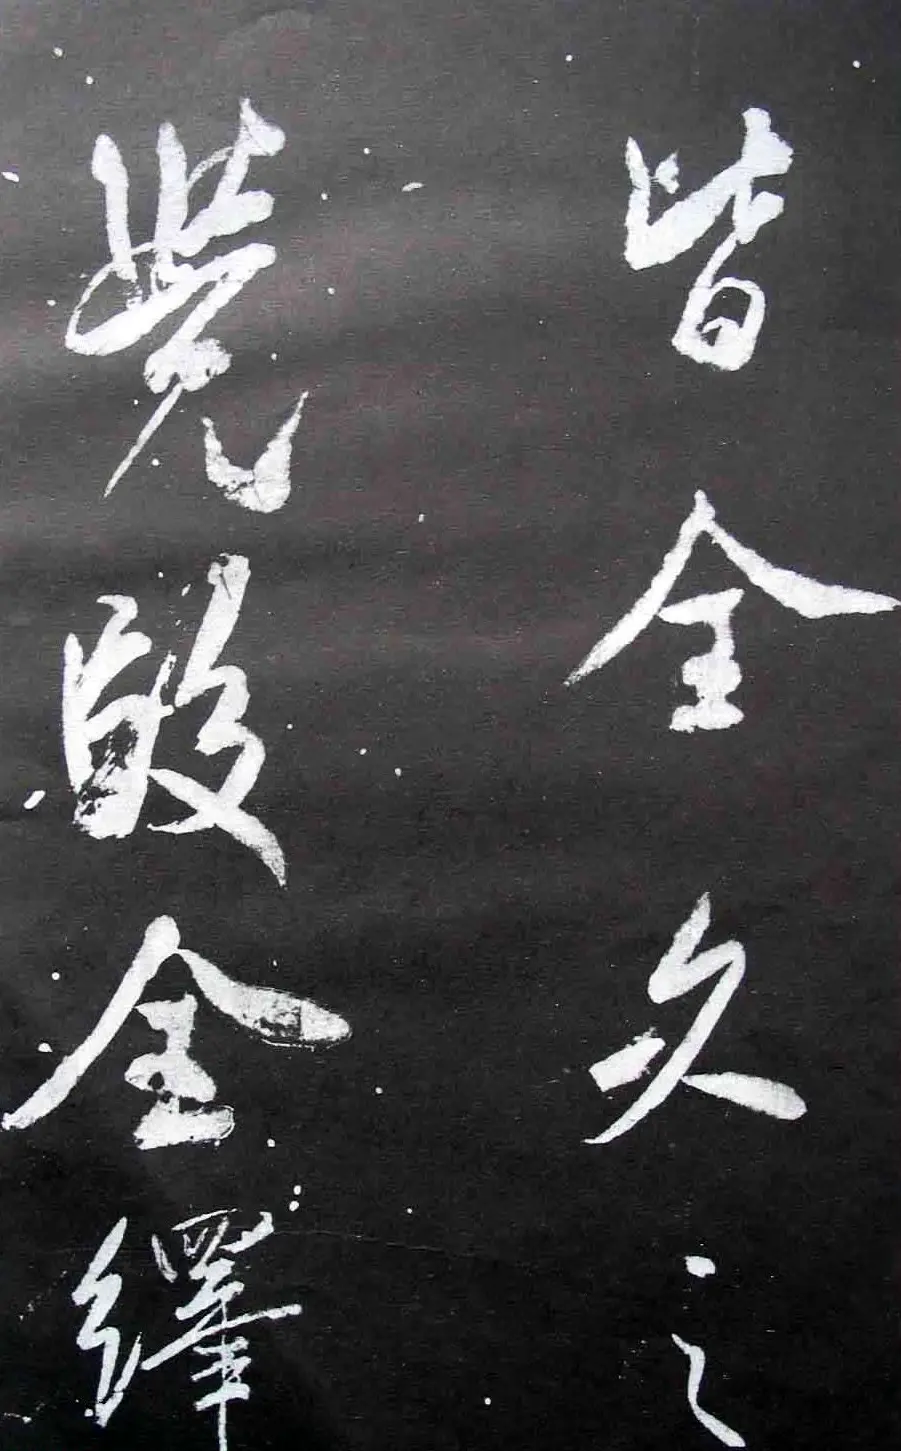 皆全久之
覺全繹